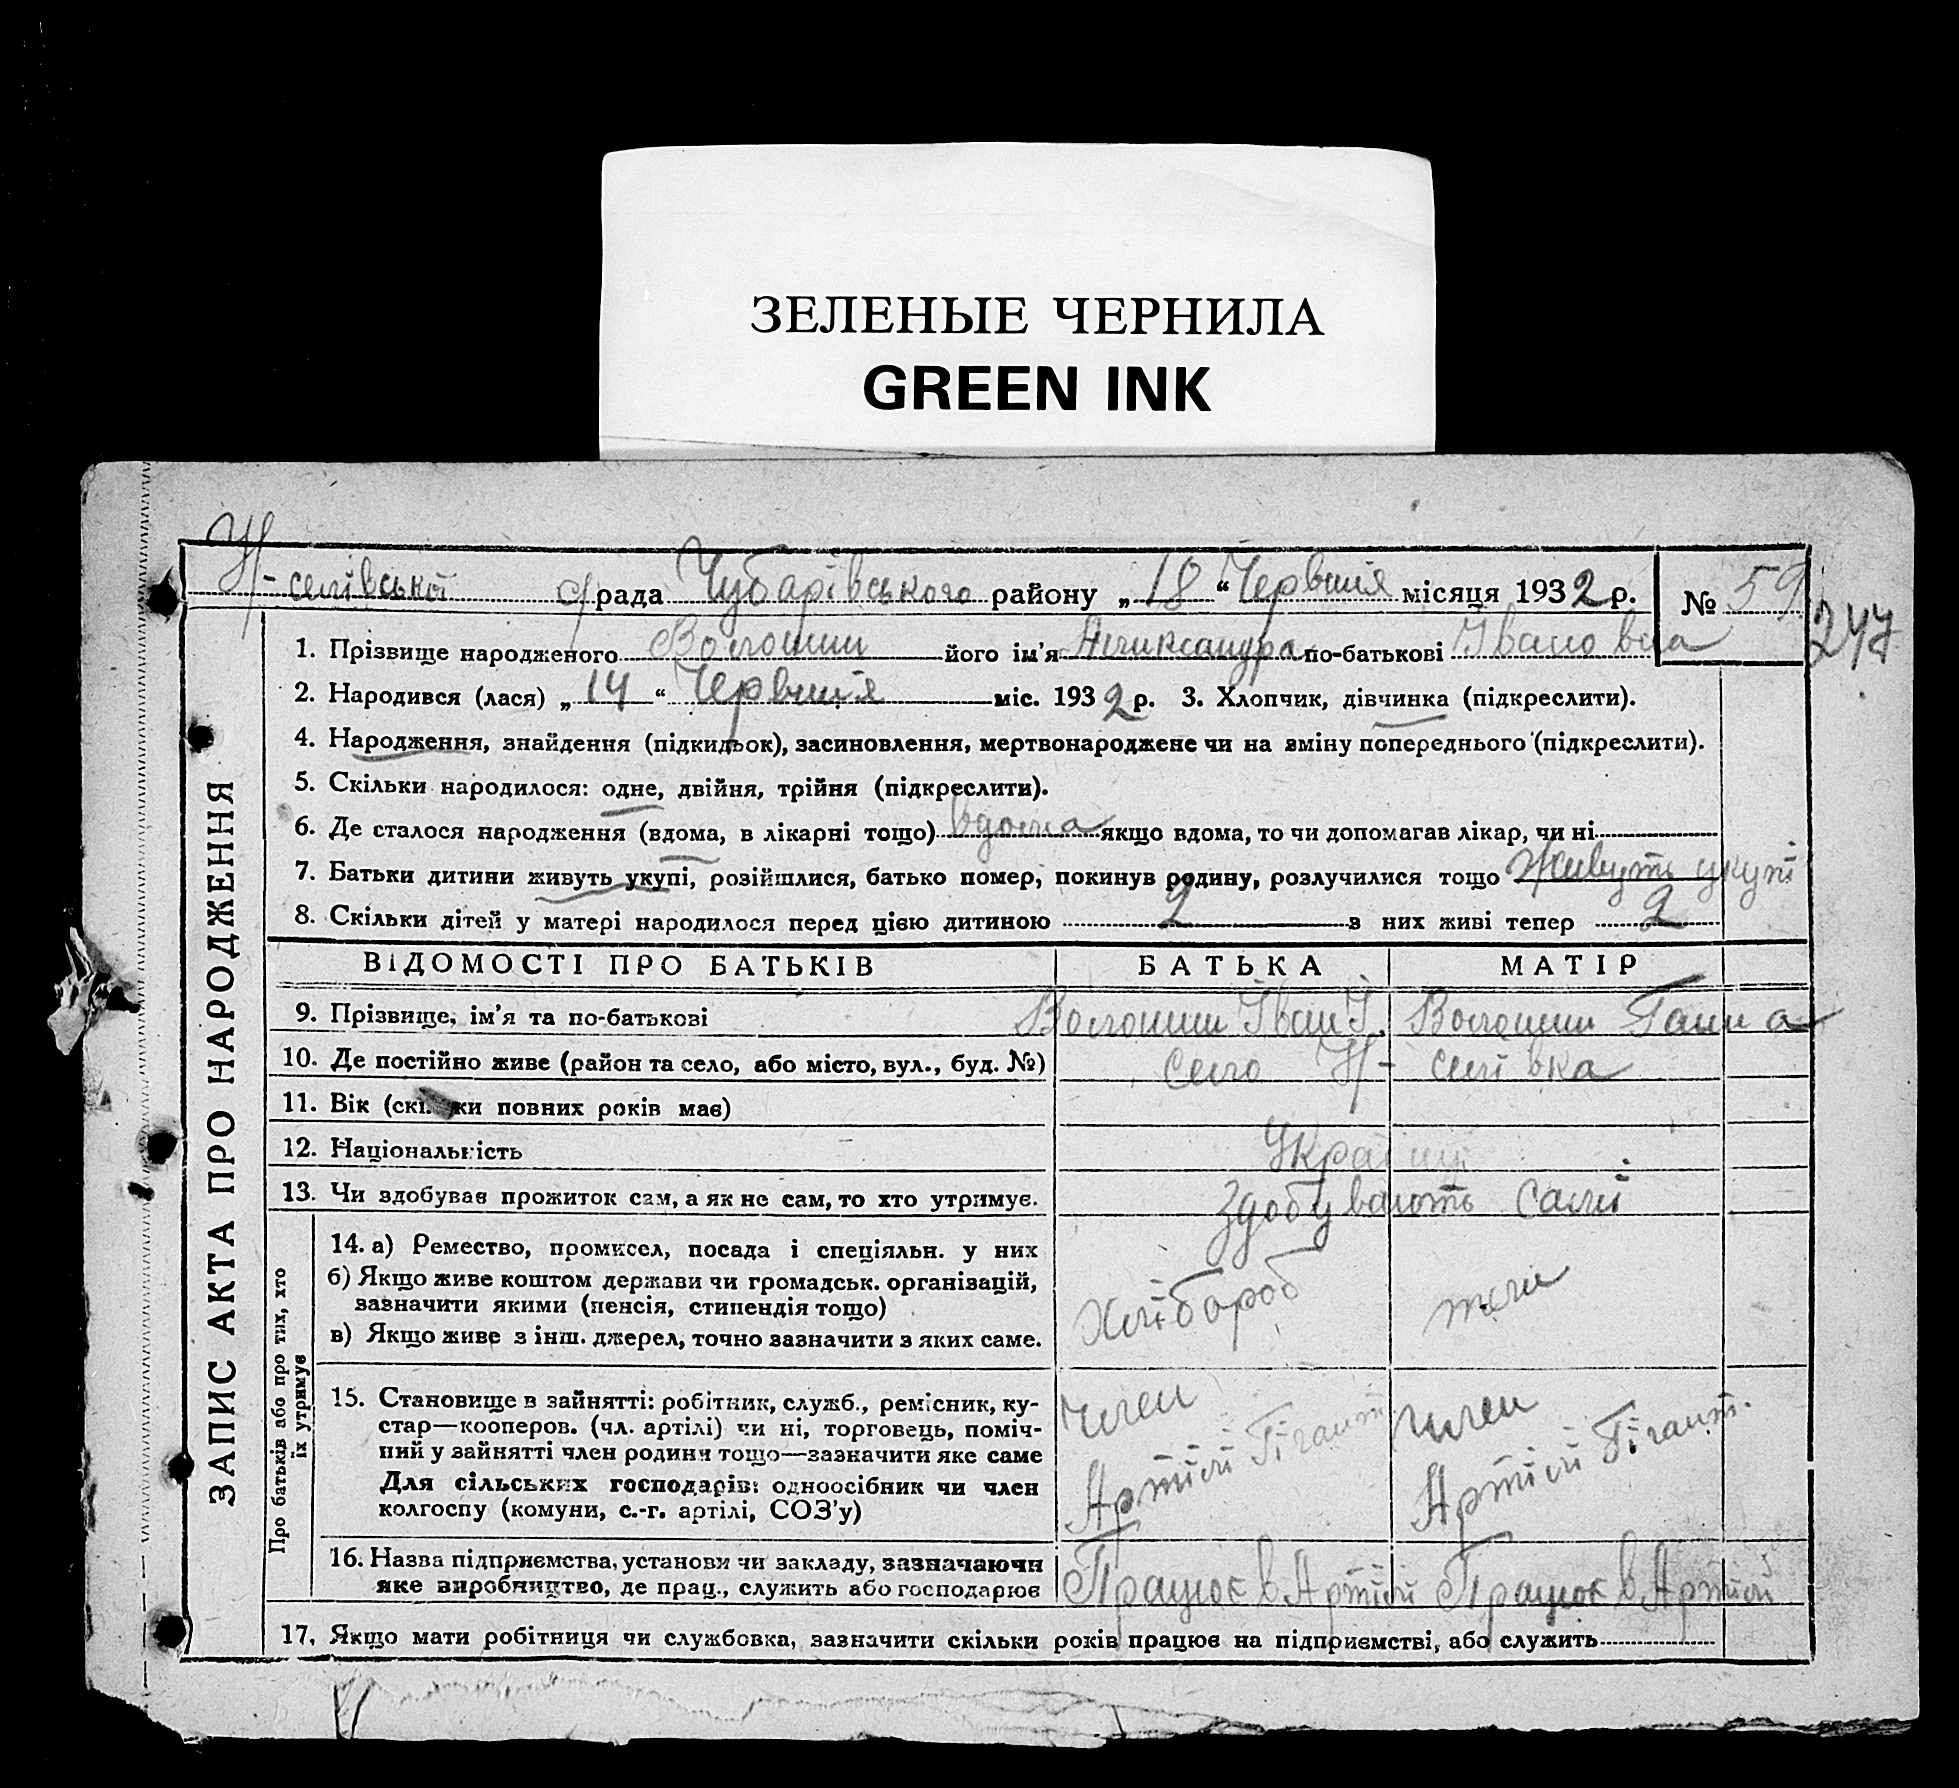 ЗЕЛЕНЫЕ ЧЕРНИЛА
GREEN INK
Н-селівської с/рада Чубарівського району „18“ Червня місяця 1932 р. № 59
247
1. Прізвище народженого Волошин його ім’я Олександра по-батькові Івановна
2. Народився (лася) „14“ Червня міс. 1932 р. 3. Хлопчик, дівчинка (підкреслити).
4. Народження, знайдення (підкидьок), засиновлення, мертвонароджене чи на зміну попереднього (підкреслити).
5. Скільки народилося: одне, двійня, трійня (підкреслити).
6. Де сталося народження (вдома, в лікарні тощо) вдома якщо вдома, то чи допомагав лікар, чи ні
7. Батьки дитини живуть укупі, розійшлися, батько помер, покинув родину, розлучилися тощо Живуть укупі
8. Скільки дітей у матері народилося перед цією дитиною 2 з них живі тепер 2
ВІДОМОСТІ ПРО БАТЬКІВ БАТЬКА МАТІР
9. Прізвище, ім’я та по-батькові Волошин Іван І. Волошин Ганна
10. Де постійно живе (район та село, або місто, вул., буд. №) село Н-селівка
11. Вік (скільки повних років має)
12. Національність Українці
13. Чи здобуває прожиток сам, а як не сам, то хто утримує. Здобувають самі
ЗАПИС АКТА ПРО НАРОДЖЕННЯ
Про батьків або про тих, хто
їх утримує
14. а) Ремество, промисел, посада і спеціяльн. у них
б) Якщо живе коштом держави чи громадськ. організацій,
зазначити якими (пенсія, стипендія тощо)
в) Якщо живе з інш. джерел, точно зазначити з яких саме.
Хлібороб теж
15. Становище в зайнятті: робітник, служб., ремісник, ку-
стар—кооперов. (чл. артілі) чи ні, торговець, поміч-
ний у зайнятті член родини тощо—зазначити яке саме
Для сільських господарів: одноосібник чи член
колгоспу (комуни, с.-г. артілі, СОЗ’у)
Член Артілі Гігант Член Артілі Гігант.
16. Назва підприємства, установи чи закладу, зазначаючи
яке виробництво, де прац., служить або господарює
Працює в Артілі Працює в Артілі
17. Якщо мати робітниця чи службовка, зазначити скільки років працює на підприємстві, або служить